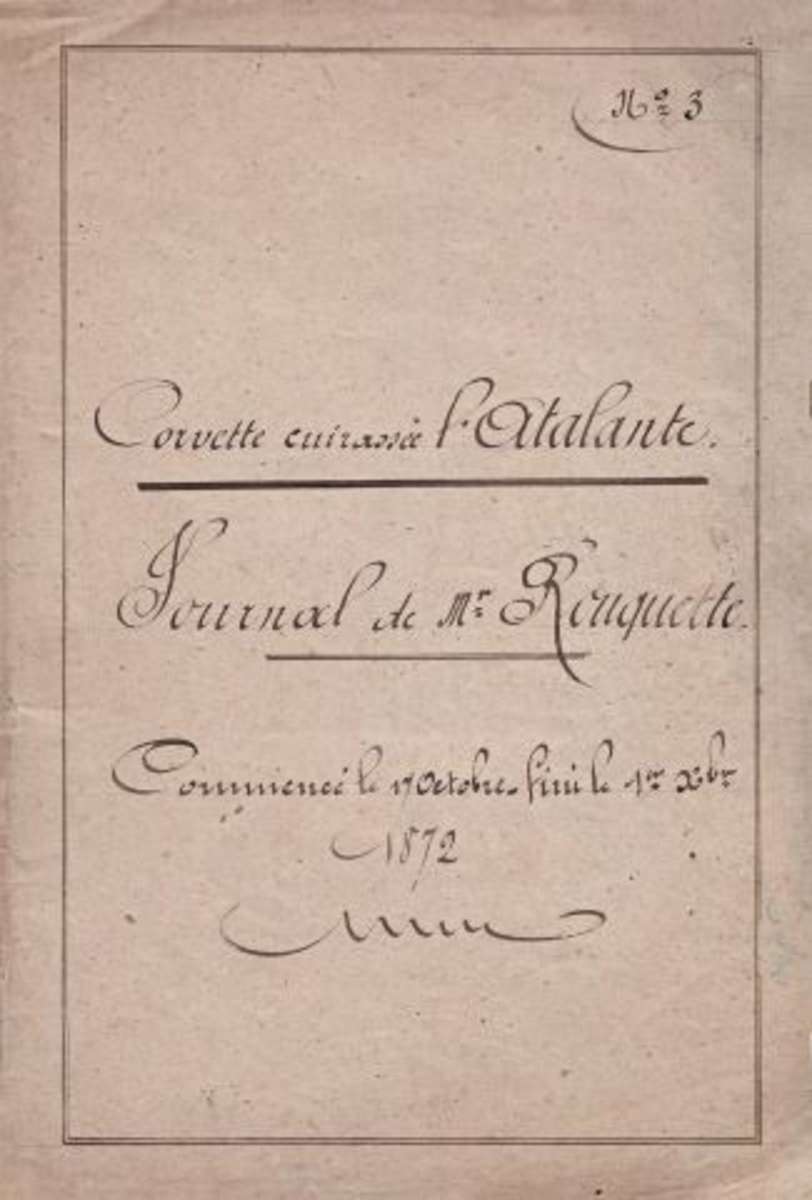 No 3
Corvette cuirassée l'Atalante.
Journal de Mr Rouquette.
Commencé le 17 Octobre. fini le 1er Xbr
1872